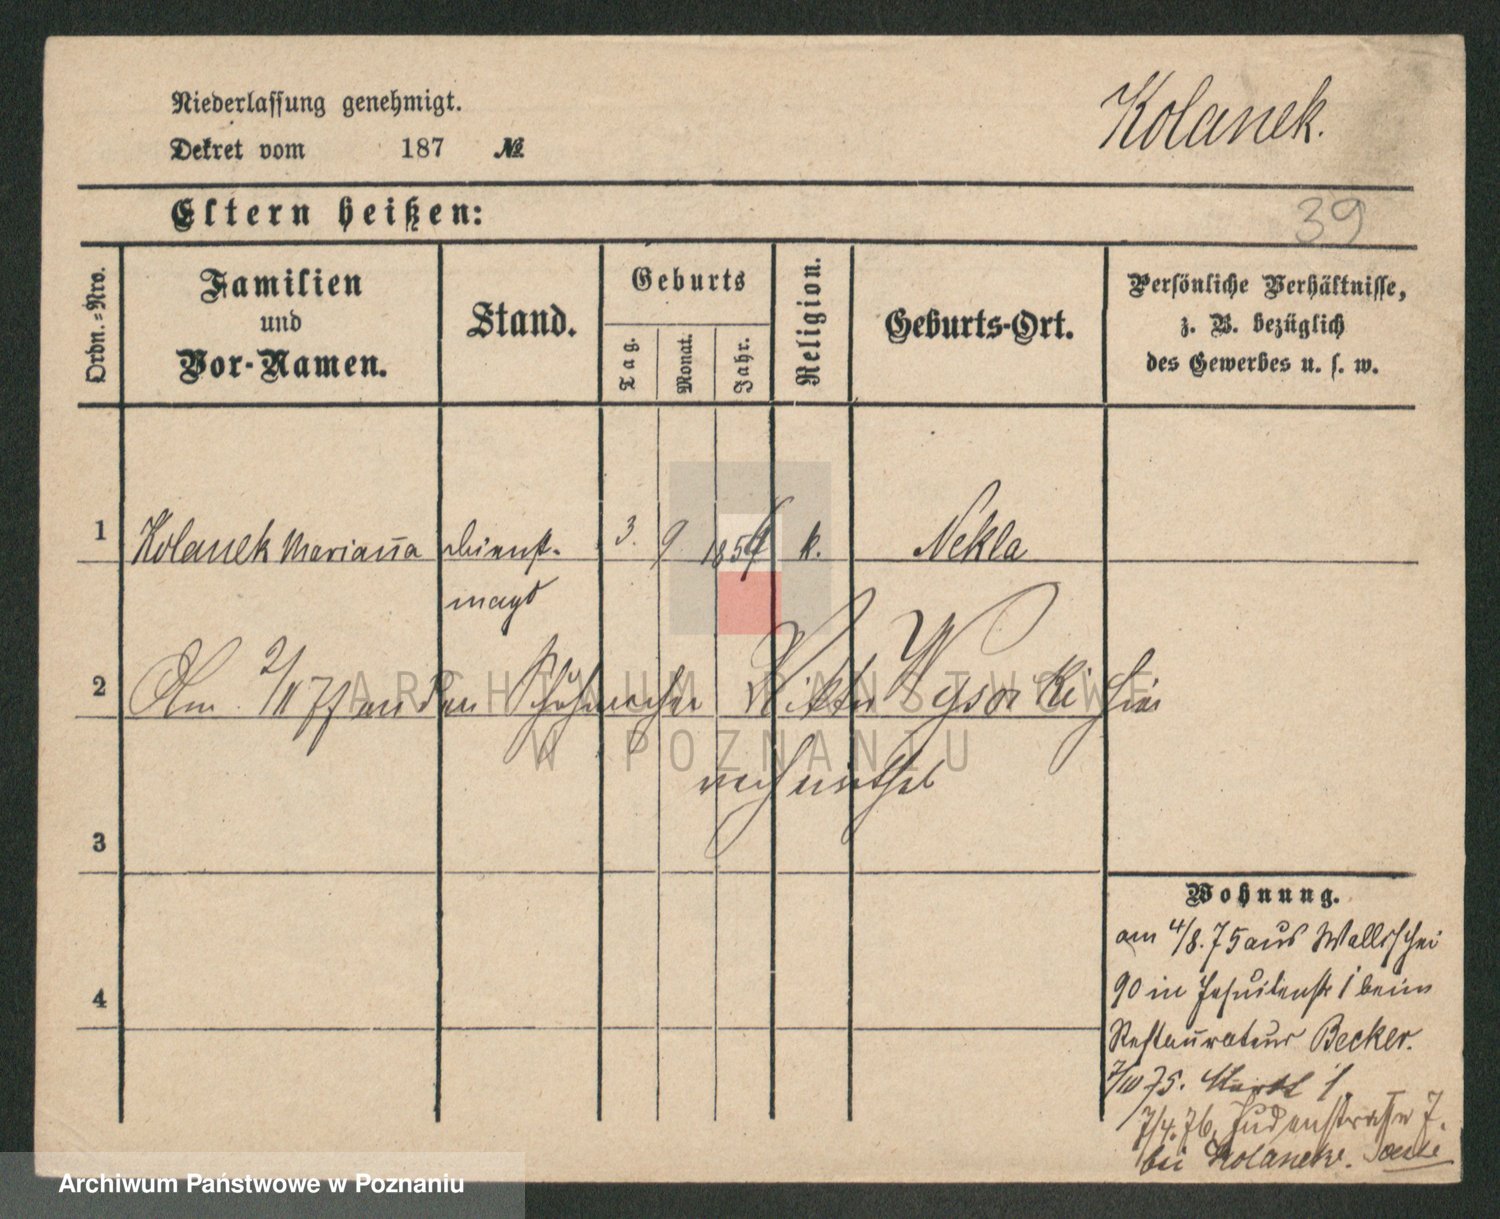 Kolanek.
Niederlassung genehmigt.
Dekret vom 187 №
Eltern heißen:
39
Ordn.-Nro.
Familien
und
Vor-Namen.
Stand.
Geburts
Tag.
Monat.
Jahr.
Religion.
Geburts-Ort.
Persönliche Verhältnisse,
z. B. bezüglich
des Gewerbes u. s. w.
1 Kolanek Marianna Dienst- 3. 9. k. Nekla
magd
2 Am 2/11 77 an den Schuhmacher Wysocki hier
verheirathet
ARCHIWUM PAŃSTWOWE
W POZNANIU
3
Wohnung.
am 4/8. 75 aus Wallischei
4
90 in Jesuitenstr 1 beim
Restaurateur Becker.
75. Markt 1.
7/4. 76. Judenstrasse 7.
bei Kolanek.
Archiwum Państwowe w Poznaniu